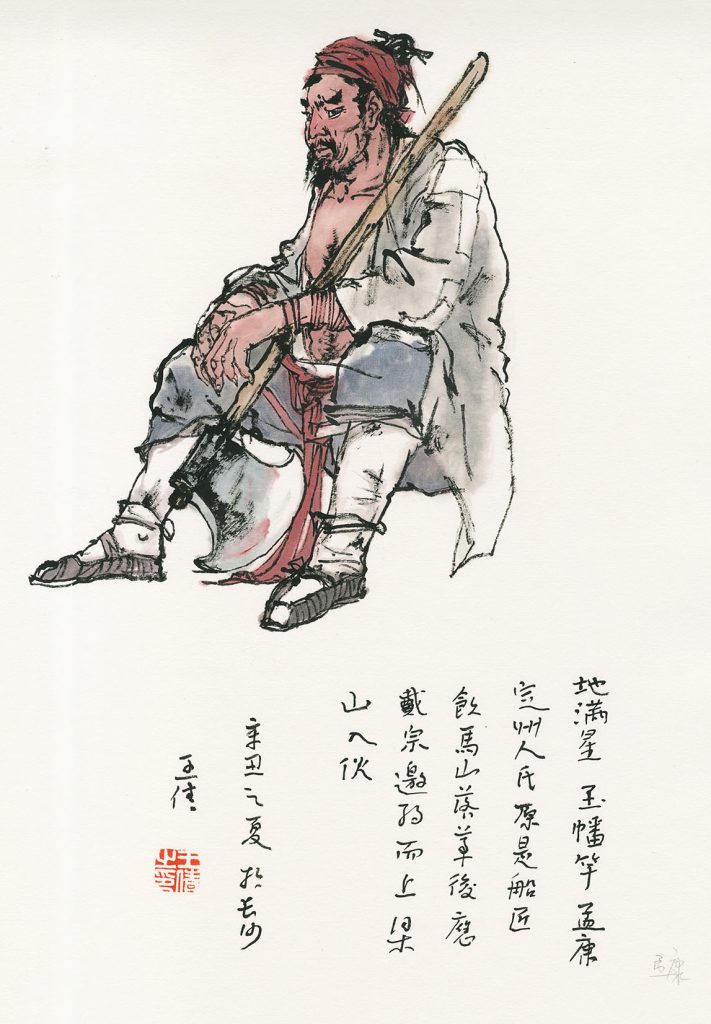 地满星 玉幡竿 孟康
定州人氏原是船匠
飲馬山落草後應
戴宗邀约而上梁
山入伙
辛丑之夏 於长沙
王倩
孟康